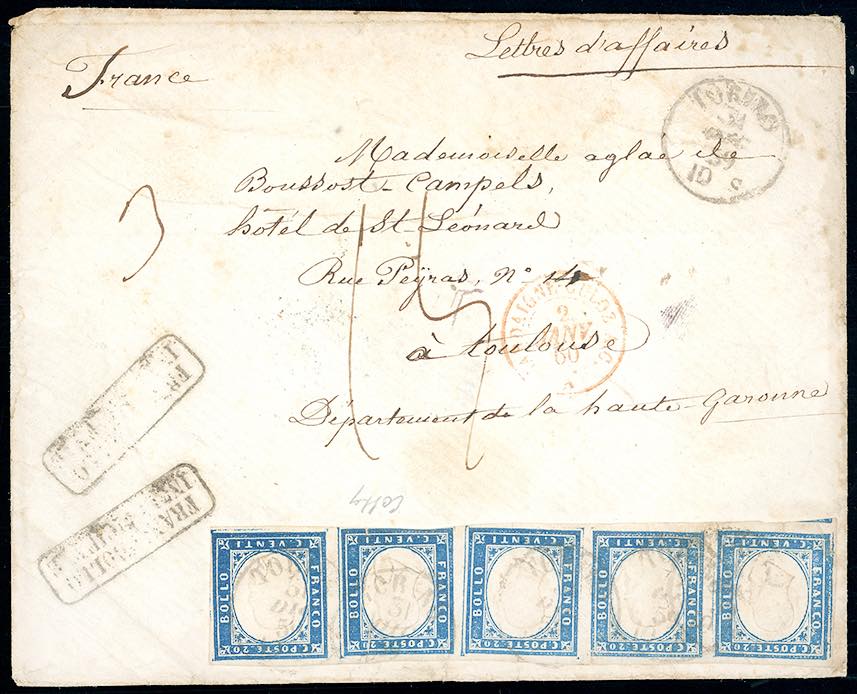 Lettres d'affaires
France
TORINO
31
DIC
59
10 S
Mademoiselle aglaé de
Boussost-Campels,
hôtel de St Léonard
3
15
Rue Peÿras, N° 14
2
JANV
60
à toulouse
Département de la haute-Garonne
FRANCOBOLLO
INSUFFICIENTE
C. VENTI
BOLLO
FRANCO
C. POSTE. 20
C. VENTI
BOLLO
FRANCO
C. POSTE. 20
C. VENTI
BOLLO
FRANCO
C. POSTE. 20
C. VENTI
BOLLO
FRANCO
C. POSTE. 20
C. VENTI
BOLLO
FRANCO
C. POSTE. 20